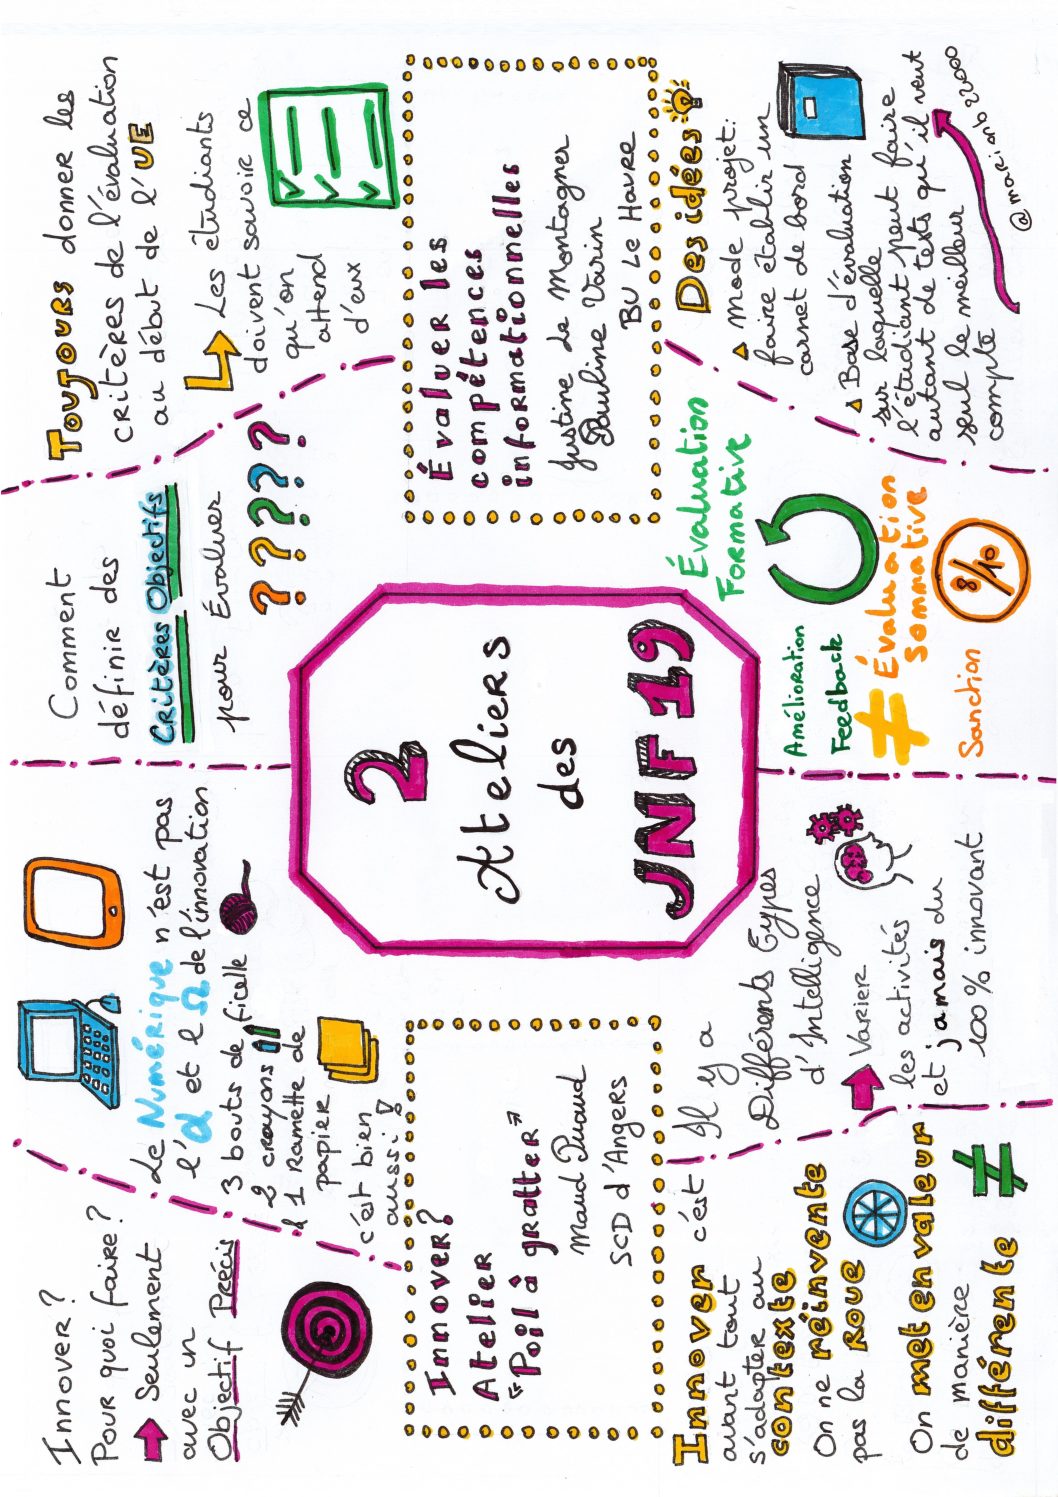 2
Ateliers
des
JNF 19
Innover?
Pour quoi faire?
Seulement
avec un
Objectif Précis
Le Numérique n'est pas
l'α et l'Ω de l'innovation
3 bouts de ficelle
2 crayons
& 1 Ramette de
papier
c'est bien
aussi!
Innover?
Atelier
"Poil à gratter"
Maud Puaud
SCD d'Angers
Innover c'est
avant tout
s'adapter au
contexte
On ne réinvente
pas la Roue
On met en valeur
de manière
différente
≠
Il y a
Différents Types
d'Intelligence
Varier
les activités
et jamais du
100% innovant
Comment
définir des
Critères Objectifs
pour Évaluer
? ? ? ? ?
Toujours donner les
critères de l'évaluation
au début de l'UE
Les étudiants
doivent savoir ce
qu'on
attend
d'eux
Évaluer les
compétences
informationnelles
Justine de Montagner
Pauline Varin
BU Le Havre
Évaluation
Formative
Amélioration
Feedback
≠ Évaluation
sommative
Sanction
8/10
Des idées
Mode projet:
faire établir un
carnet de bord
Base d'évaluation
sur laquelle
l'étudiant peut faire
autant de tests qu'il veut
seul le meilleur
compte
@marionb22000